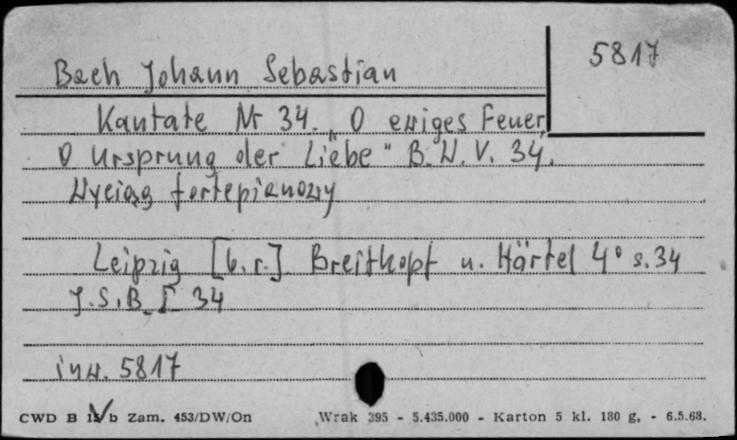 5817
Bach Johann Sebastian
Kantate Nr 34. „O ewiges Feuer,
O Ursprung der Liebe" B.W.V. 34.
Wyciąg fortepianowy
Leipzig [b.r.] Breitkopf u. Härtel 4° s. 34
J.S.B. I 34
inw. 5817
CWD B b Zam. 453/DW/On Wrak 395 - 5.435.000 - Karton 5 kl. 180 g. - 6.5.68.